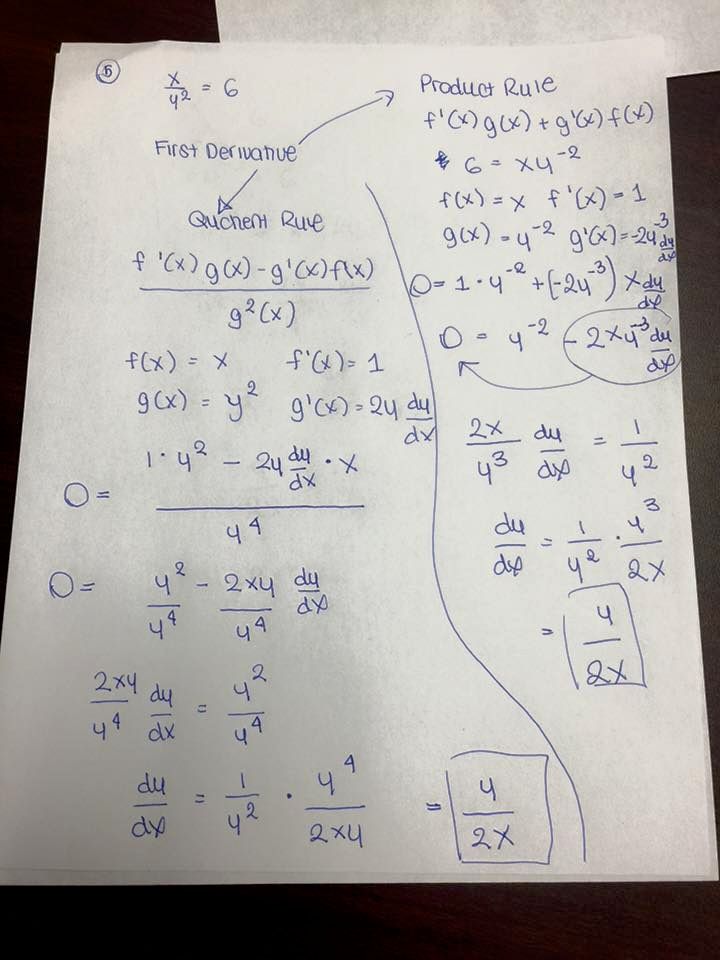 ⑤ x/y² = 6
First Derivative
Quotient Rule
f'(x) g(x) - g'(x) f(x) / g²(x)
f(x) = x f'(x) = 1
g(x) = y² g'(x) = 2y dy/dx
0 = (1 · y² - 2y dy/dx · x) / y⁴
0 = y²/y⁴ - 2xy/y⁴ dy/dx
2xy/y⁴ dy/dx = y²/y⁴
dy/dx = 1/y² · y⁴/2xy = y/2x
Product Rule
f'(x) g(x) + g'(x) f(x)
6 = xy⁻²
f(x) = x f'(x) = 1
g(x) = y⁻² g'(x) = -2y⁻³ dy/dx
0 = 1 · y⁻² + (-2y⁻³) x dy/dx
0 = y⁻² - 2xy⁻³ dy/dx
2x/y³ dy/dx = 1/y²
dy/dx = 1/y² · y³/2x
= y/2x